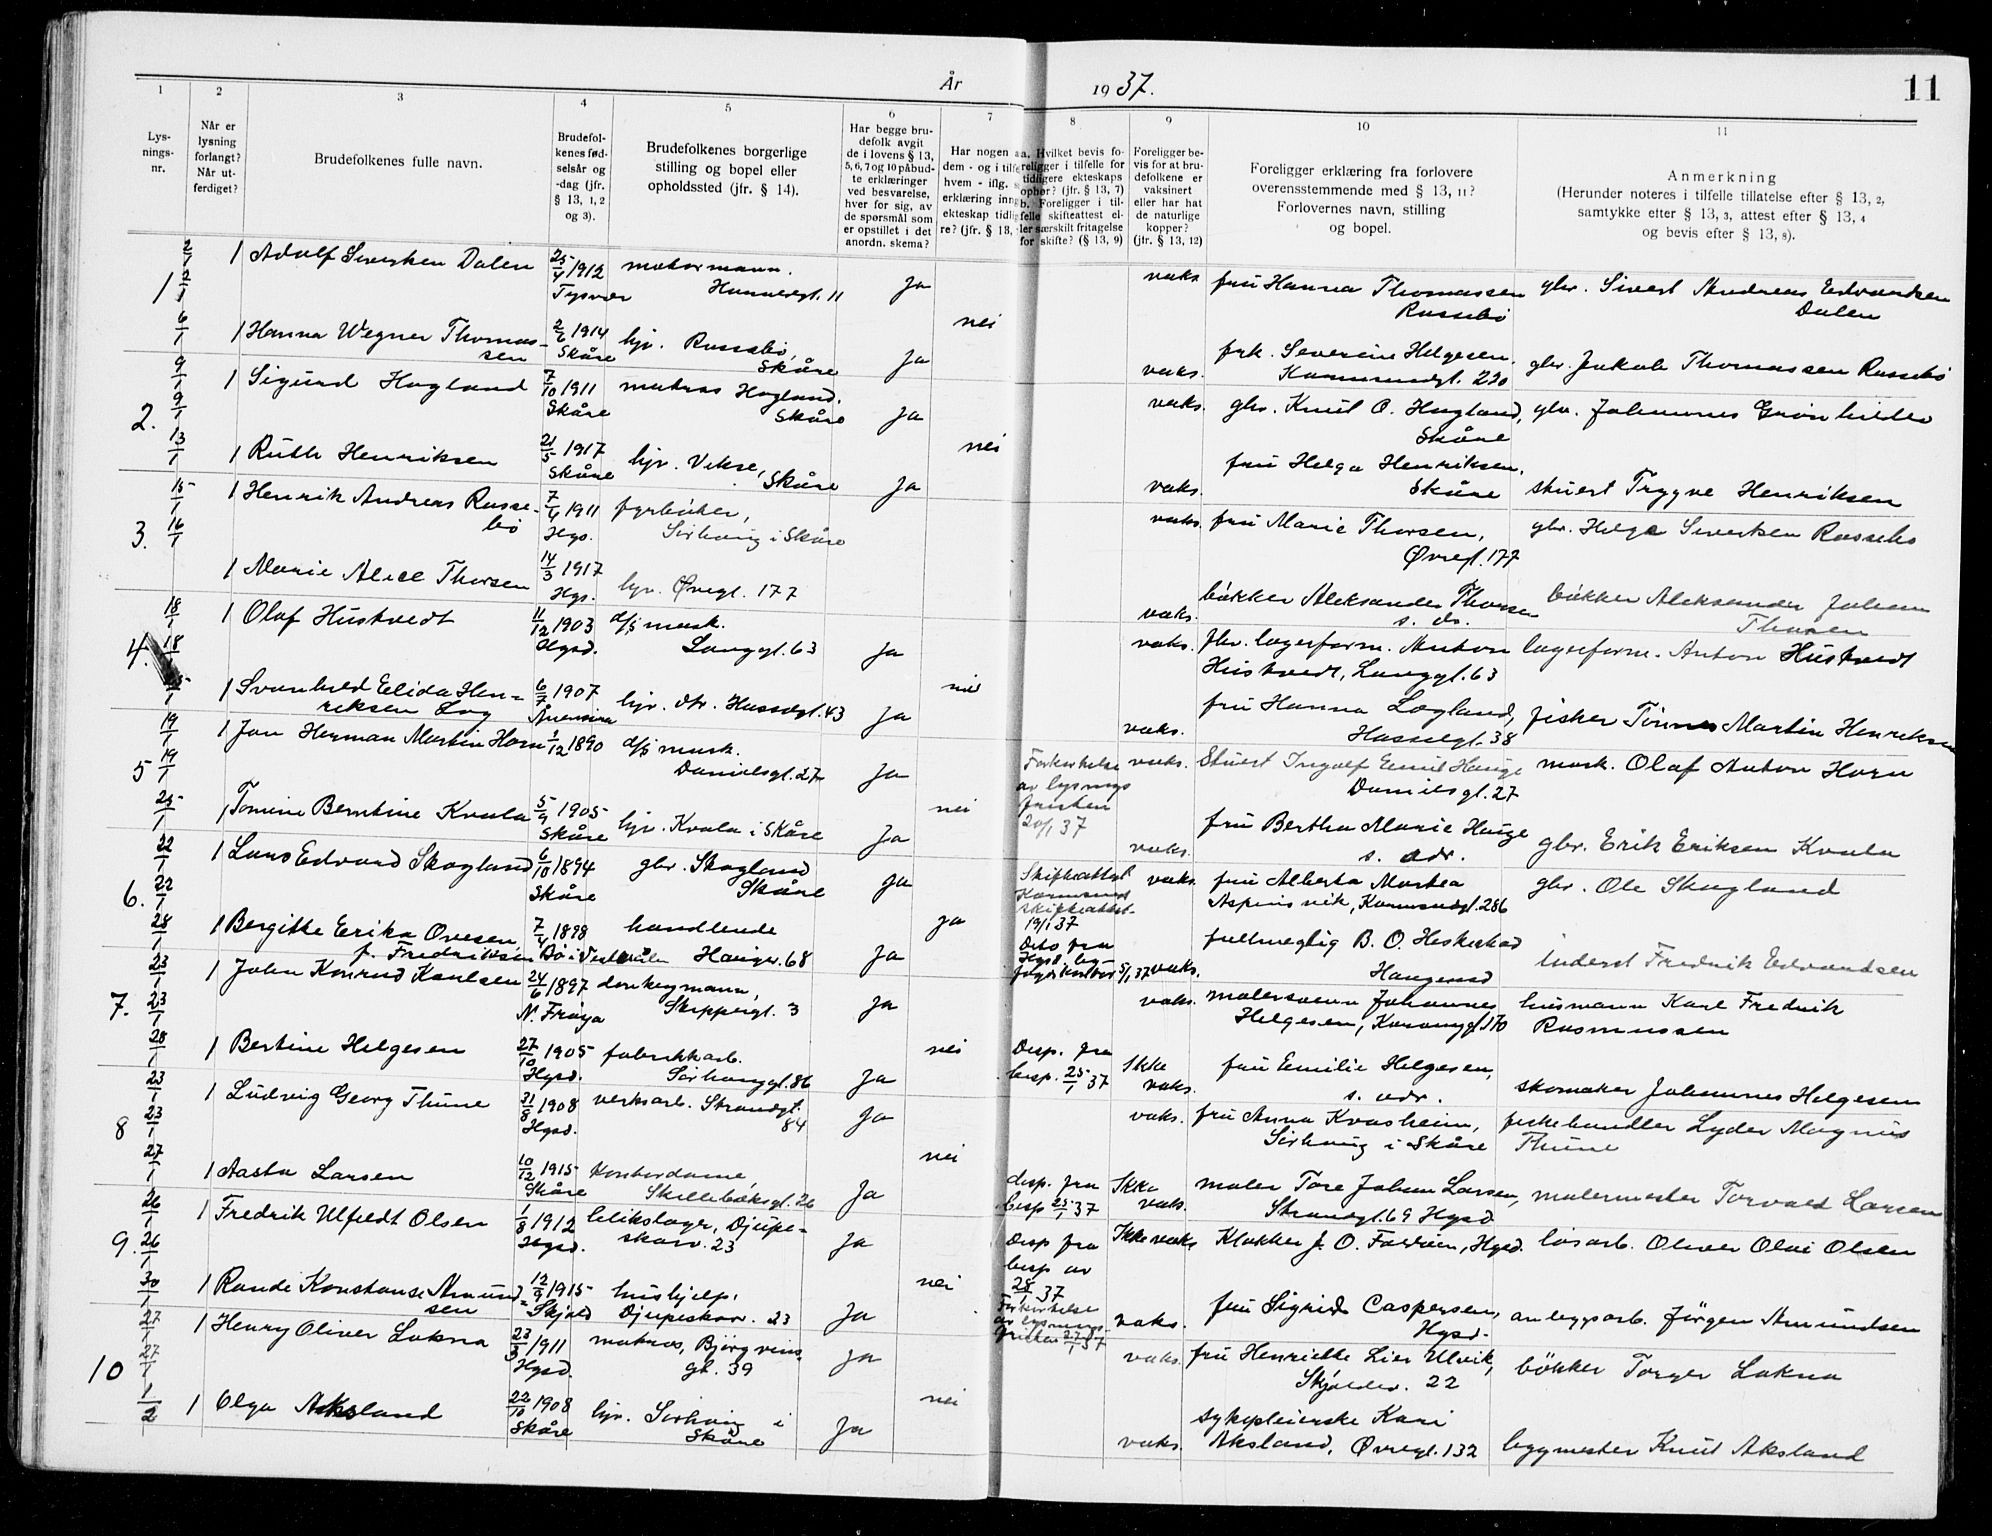 År 1937. 11
1 2 3 4 5 6 7 8 9 10 11
Lys-
nings-
nr.
Når er
lysning
forlangt?
Når ut-
ferdiget?
Brudefolkenes fulle navn.
Brudefol-
kenes fød-
selsår og
-dag (jfr.
§ 13, 1, 2
og 3).
Brudefolkenes borgerlige
stilling og bopel eller
opholdssted (jfr. § 14).
Har begge bru-
defolk avgit
de i lovens § 13,
5, 6, 7 og 10 påbud-
te erklæringer
ved besvarelse,
hver for sig, av
de spørsmål som
er opstillet i det
anordn. skema?
Har nogen a
dem - og i tilfe
hvem - iflg.
erklæring inng
ekteskap tidlig
re? (jfr. § 13,
a. Hvilket bevis fo-
religger i tilfelle for
tidligere ekteskaps
ophør? (jfr. § 13, 7)
b. Foreligger i til-
felle skifteattest el-
ler særskilt fritagelse
for skifte? (§ 13, 9)
Foreligger be-
vis for at bru-
defolkene er
vaksinert
eller har hat
de naturlige
kopper?
(jfr. § 13, 12)
Foreligger erklæring fra forlovere
overensstemmende med § 13, 11?
Forlovernes navn, stilling
og bopel.
Anmerkning
(Herunder noteres i tilfelle tillatelse efter § 13, 2,
samtykke efter § 13, 3, attest efter § 13, 4
og bevis efter § 13, 8).
1 2/1 2/1 1 Adolf Sivertsen Dalen 25/4 1912 Tysvær motormann. 11 Ja vaks. fru Hanna Thomassen Rossebø gbr. Sivert Andreas Edvardsen Dalen
6/1 1 Hanna Wegner Thomas-
sen 2/6 1914 Skåre hjv. Rossebø, Skåre Ja nei vaks. frk. Severine Helgesen, Karmsundgt. 220 gbr. Jakob Thomassen Rossebø
2. 9/1 9/1 1 Sigurd Hagland 7/10 1911 Skåre matros Hagland. Skåre Ja vaks. gbr. Knut O. Hagland, Skåre gbr. Johannes
13/1 1 Ruth Henriksen 21/5 1917 Skåre hjv. Vikse, Skåre Ja nei vaks. fru Helga Henriksen, Skåre stuert Trygve Henriksen
3. 15/1 16/1 1 Henrik Andreas Rosse-
bø 7/4 1911 Hgs. fyrbøter, Sørhaug i Skåre vaks. fru Marie Thorsen, Øvregt. 177 gbr. Helge Sivertsen Rossebø
1 Marie Alice Thorsen 14/3 1917 Hgs. hjv. Øvregt. 177 vaks. bøkker Aleksander Thorsen s. ds. bøkker Aleksander Johan Thorsen
4. 18/1 18/1 1 Olaf Hustvedt 11/12 1903 Hgsd. d/s mask. Langgt. 63 Ja vaks. fhv. lagerform. Anton Hustvedt, Langgt. 63 lagerform. Anton Hustvedt
1 Svanhild Elida Hen-
riksen Log 6/7 1907 hjv. Hasselgt. 43 Ja nei vaks. fru Hanna Lægland, Hasselgt. 38 fisker Tönnes Martin Henriksen
5 19/1 19/1 1 Jon Herman Martin Horn 1/12 1890 d/s mask. Danielsgt. 27 Ja vaks. Stuert Ingolf Emil Hauge Danielsgt. 27 mask. Olaf Anton Horn
25/1 1 Tomine Berntine Kvala 5/9 1905 Skåre hjv. Kvala i Skåre Ja nei Forkortelse av lysnings fristen 20/1 37 vaks. fru Bertha Marie Hauge s. adr. gbr. Erik Eriksen Kvala
6. 22/1 22/1 1 Lars Edvard Skogland 6/10 1894 Skåre gbr. Skogland Skåre Ja Skifteattest Karmsund skifteattest 19/1 37 vaks. fru Alberta Mortea Aspensvik, Karmsundgt. 286 gbr. Ole Skogland
28/1 1 Bergitte Erika Ovesen,
f. Fredriksen 7/4 1898 Bø i Vesterålen handlende 68 Ja ja Dito fra Hgsd. by- 5/1 37 vaks. fullmegtig B. O. Haugesund inderst Fredrik Edvardsen
7. 23/1 23/1 1 John Konrad Karlsen 24/6 1897 N. Frøya donkeymann, Skippergt. 3 Ja vaks. malersvenn Johannes Helgesen, 170 husmann Karl Fredrik Rasmussen
28/1 1 Bertine Helgesen 27/10 1905 Hgsd. fabrikkarb. Sørhauggt. 86 Ja nei Desp. fra bisp. 25/1 37 Ikke vaks. fru Emilie Helgesen, s. adr. skomaker Johannes Helgesen
8 23/1 23/1 1 Ludvig Georg Thune 31/8 1908 Hgsd. verksarb. Strandgt. 84 Ja vaks. fru Anna Kvasheim, Sørhaug i Skåre fiskehandler Lyder Magnus Thune
27/1 1 Aasta Larsen 10/12 1915 Skåre kontordame, Skillebæksgt. 26 Ja nei desp. fra bisp 25/1 37 Ikke vaks. maler Tore Johan Larsen, Strandgt. 69 Hgsd malermester Torvald Larsen
9. 26/1 26/1 1 Fredrik Ulfeldt Olsen 1/8 1912 Hgsd. blikslagr, Djupe-
skarv. 23 Ja Desp fra bisp av 28/1 37 Ikke vaks Klokker J. O. Hgsd. løsarb. Oliver Olai Olsen
30/1 1 Randi Konstanse Amund
sen 12/9 1915 Skjold hushjelp, Djupeskarv. 23 Ja nei Forkortelse av lysnings fristen 27/1 37 vaks. fru Sigrid Caspersen, Hgsd. anleggsarb. Jörgen Amundsen
10 27/1 27/1 1 Henry Oliver Lakna 23/3 1911 Hgsd. matros, Björgvins-
gt. 39 Ja vaks. fru Henriette Lier Ulvik, Skjoldev. 22 bökker Torger Lakna
1/2 1 Olga Aksland 22/10 1908 Skåre hjv. Sørhaug i Skåre Ja nei vaks. sykepleierske Kari Aksland, Øvregt. 132 byggmester Knut Aksland